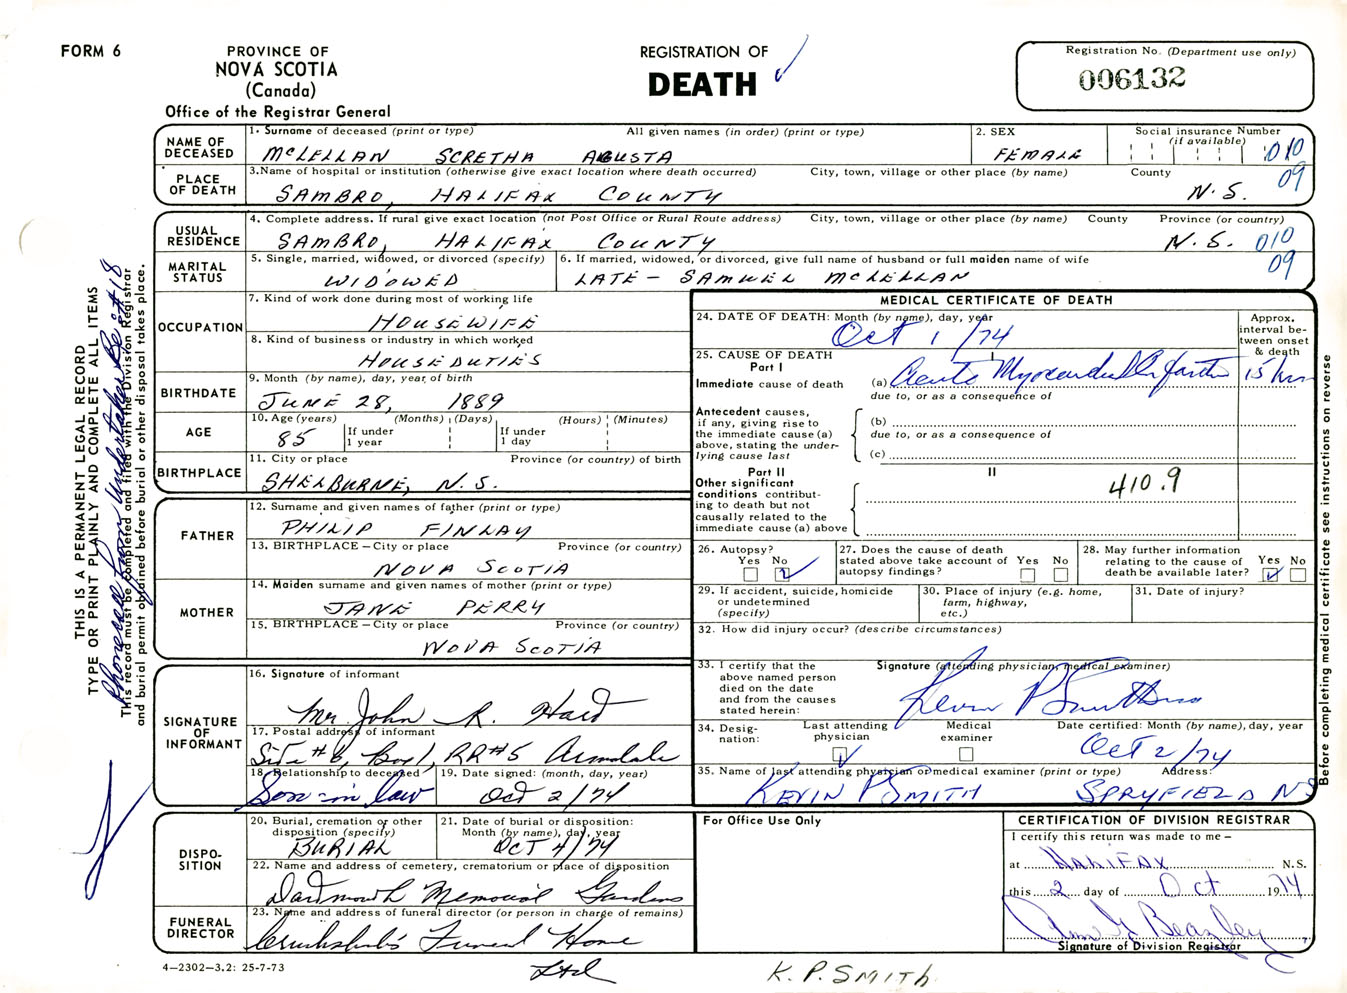 FORM 6
PROVINCE OF
NOVA SCOTIA
(Canada)
Office of the Registrar General
REGISTRATION OF
DEATH
Registration No. (Department use only)
006132
NAME OF DECEASED
1. Surname of deceased (print or type) All given names (in order) (print or type)
McLELLAN SCRETHA AGUSTA
2. SEX
FEMALE
Social insurance Number
(if available)
010
09
PLACE OF DEATH
3.Name of hospital or institution (otherwise give exact location where death occurred) City, town, village or other place (by name) County
SAMBRO, HALIFAX COUNTY N.S.
USUAL RESIDENCE
4. Complete address. If rural give exact location (not Post Office or Rural Route address) City, town, village or other place (by name) County Province (or country)
SAMBRO, HALIFAX COUNTY N.S. 010
09
MARITAL STATUS
5. Single, married, widowed, or divorced (specify)
WIDOWED
6. If married, widowed, or divorced, give full name of husband or full maiden name of wife
LATE - SAMUEL McLELLAN
OCCUPATION
7. Kind of work done during most of working life
HOUSEWIFE
8. Kind of business or industry in which worked
HOUSE DUTIES
BIRTHDATE
9. Month (by name), day, year of birth
JUNE 28, 1889
AGE
10. Age (years) (Months) (Days) (Hours) (Minutes)
85 If under 1 year If under 1 day
BIRTHPLACE
11. City or place Province (or country) of birth
SHELBURNE, N.S.
FATHER
12. Surname and given names of father (print or type)
PHILIP FINLAY
13. BIRTHPLACE – City or place Province (or country)
NOVA SCOTIA
MOTHER
14. Maiden surname and given names of mother (print or type)
JANE PERRY
15. BIRTHPLACE – City or place Province (or country)
NOVA SCOTIA
SIGNATURE OF INFORMANT
16. Signature of informant
Mr. John R. Hart
17. Postal address of informant
Site #6, Box 1, RR#5 Armdale
18. Relationship to deceased
Son-in-law
19. Date signed: (month, day, year)
Oct 2/74
DISPO-
SITION
20. Burial, cremation or other disposition (specify)
BURIAL
21. Date of burial or disposition: Month (by name), day, year
OCT 4/74
22. Name and address of cemetery, crematorium or place of disposition
Dartmouth Memorial Gardens
FUNERAL DIRECTOR
23. Name and address of funeral director (or person in charge of remains)
Cruikshank's Funeral Home
Ltd
MEDICAL CERTIFICATE OF DEATH
24. DATE OF DEATH: Month (by name), day, year
Oct 1/74
Approx. interval be-
tween onset & death
25. CAUSE OF DEATH
Part I
Immediate cause of death
(a) Acute Myocardial Infarction 15 hrs
due to, or as a consequence of
Antecedent causes, if any, giving rise to the immediate cause (a) above, stating the under-
lying cause last
(b)
due to, or as a consequence of
(c)
Part II
II
Other significant conditions contribut-
ing to death but not causally related to the immediate cause (a) above
410.9
26. Autopsy?
Yes No
27. Does the cause of death stated above take account of autopsy findings?
Yes No
28. May further information relating to the cause of death be available later?
Yes No
29. If accident, suicide, homicide or undetermined (specify)
30. Place of injury (e.g. home, farm, highway, etc.)
31. Date of injury?
32. How did injury occur? (describe circumstances)
33. I certify that the above named person died on the date and from the causes stated herein:
Signature (attending physician, medical examiner)
Kevin P Smith
34. Desig-
nation:
Last attending physician
Medical examiner
Date certified: Month (by name), day, year
Oct 2/74
35. Name of last attending physician or medical examiner (print or type) Address:
KEVIN P SMITH SPRYFIELD NS
For Office Use Only
CERTIFICATION OF DIVISION REGISTRAR
I certify this return was made to me –
at HALIFAX N.S.
this 2 day of Oct 1974
Signature of Division Registrar
4–2302–3.2: 25-7-73
K. P. SMITH
THIS IS A PERMANENT LEGAL RECORD
TYPE OR PRINT PLAINLY AND COMPLETE ALL ITEMS
This record must be completed and filed with the Division Registrar
and burial permit obtained before burial or other disposal takes place.
Before completing medical certificate see instructions on reverse